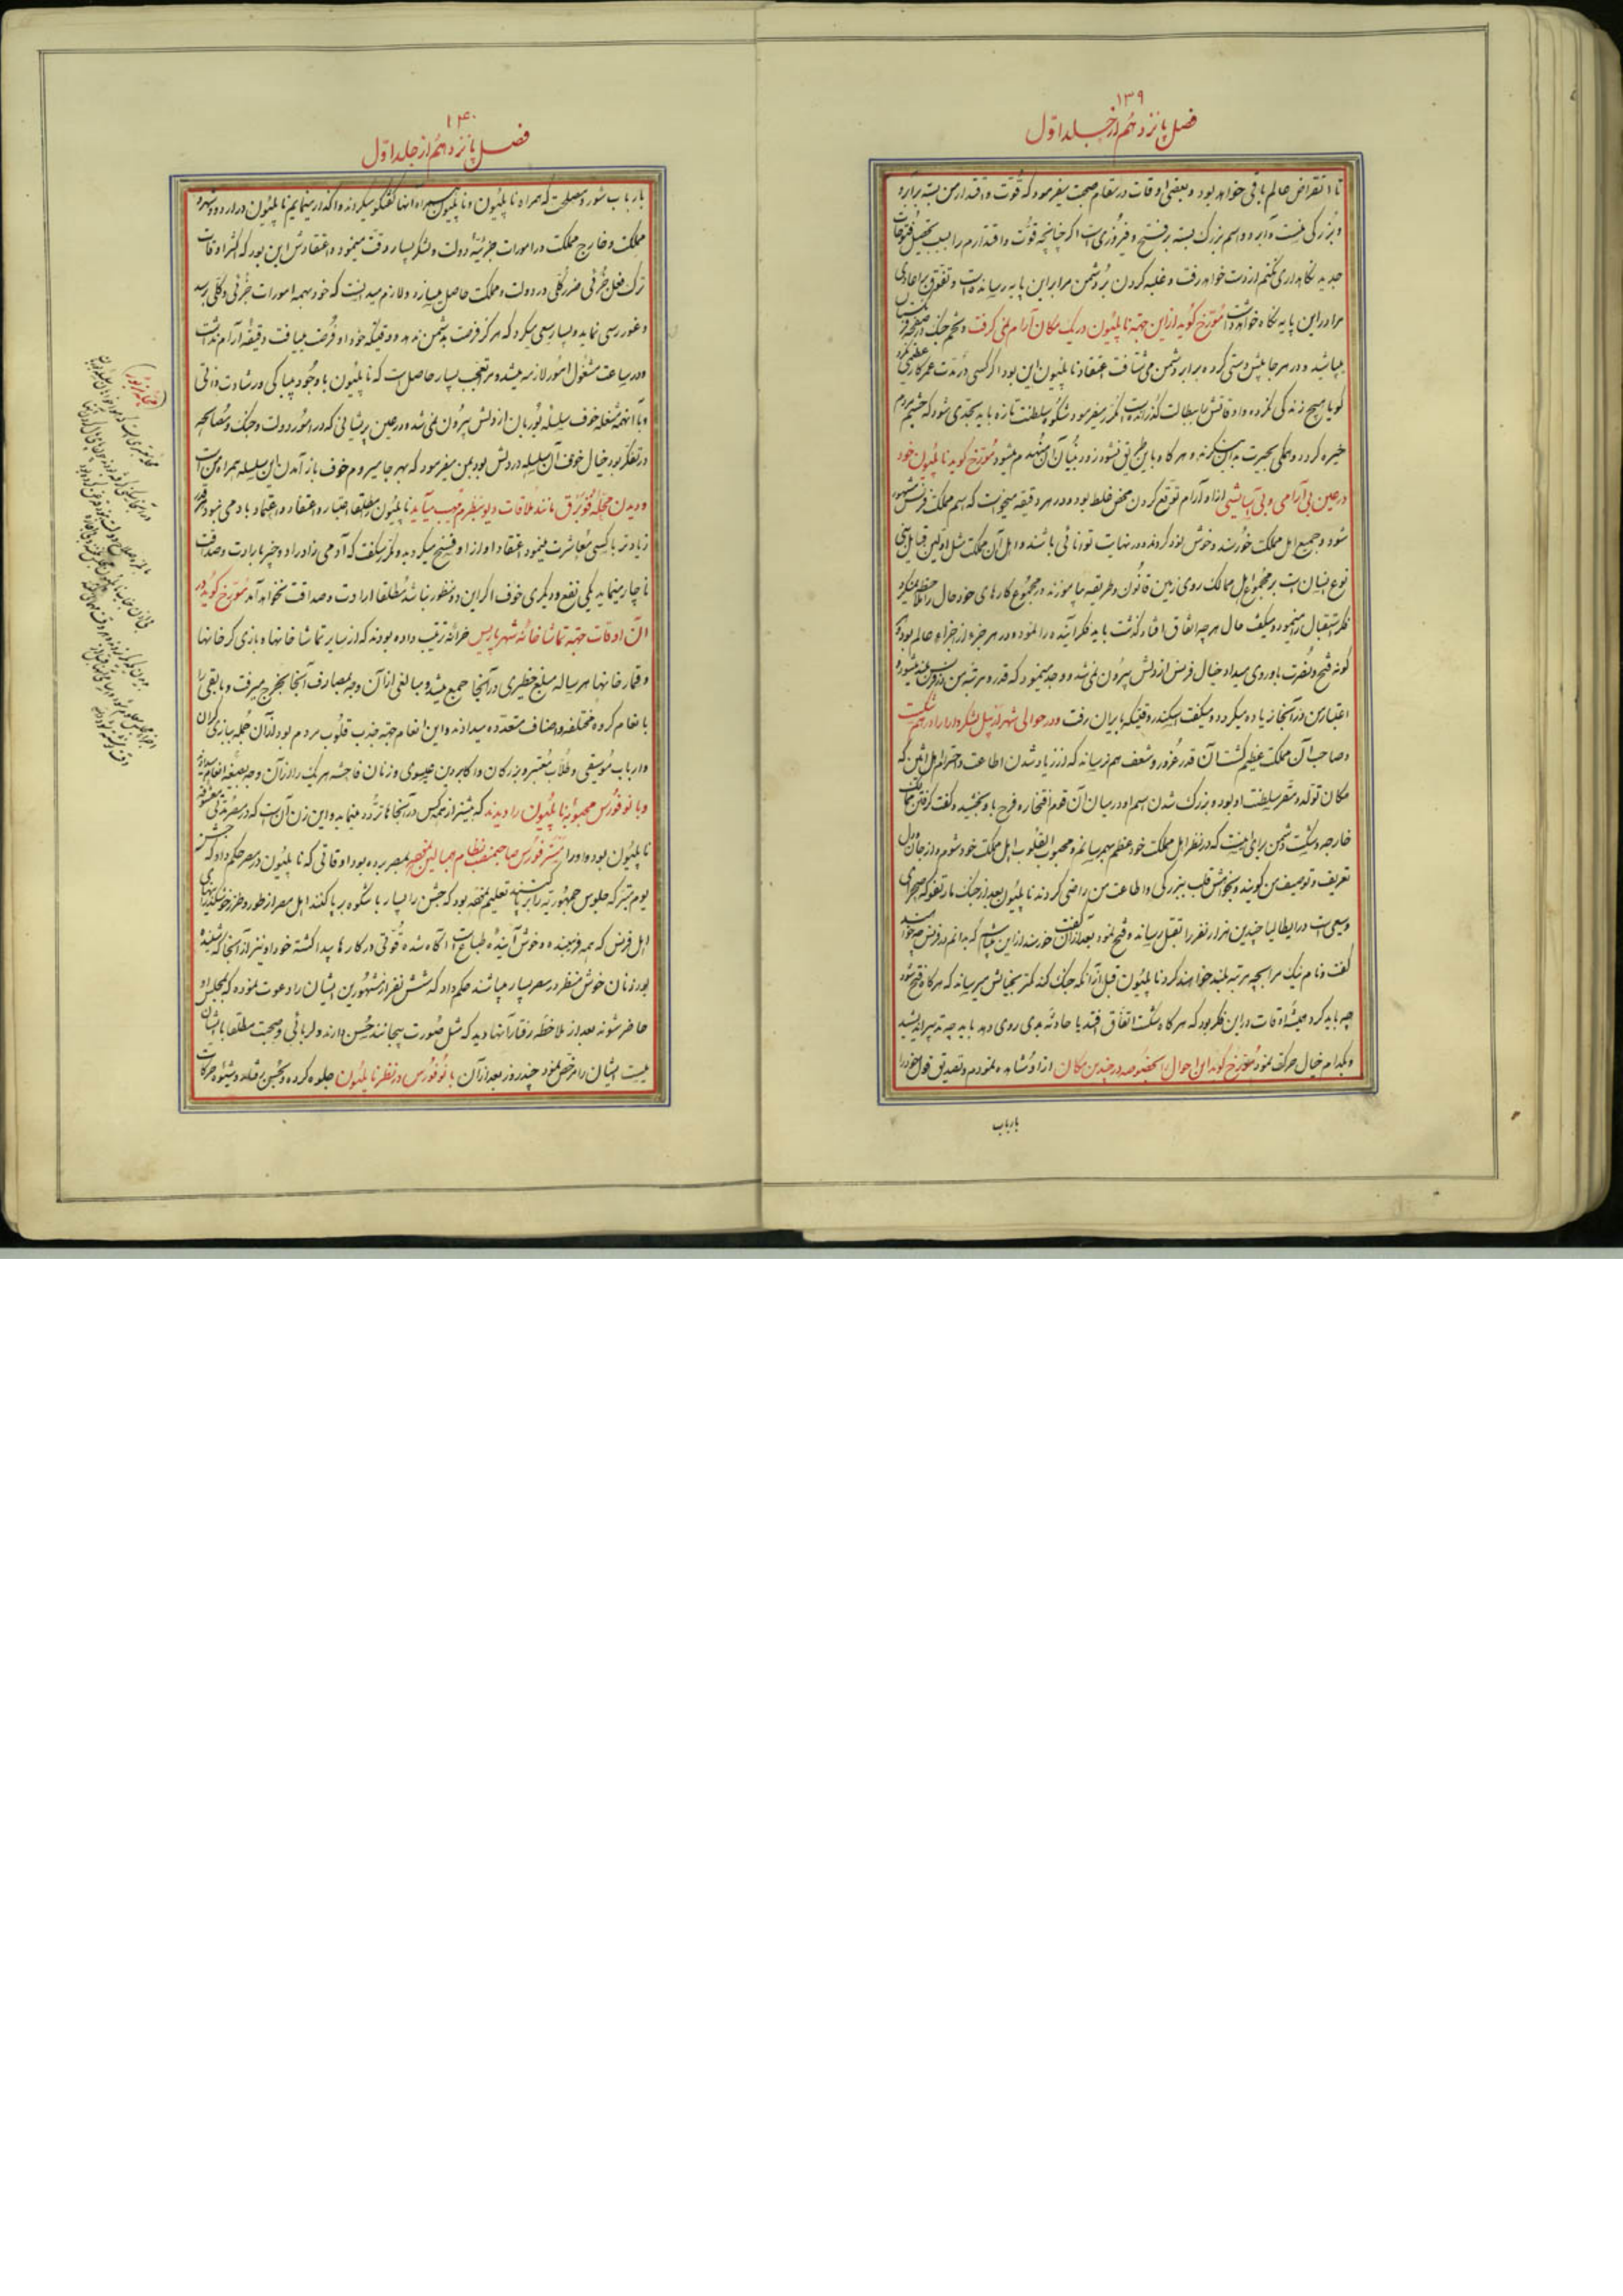 ۱۳۹
فصل پانزدهم از جلد اول
تا انقراض عالم باقی خواهد بود و بعضی اوقات در مقام صحبت میفرمود که قوّت و اقتدار من بسته بر آبرو
و بزرگی است و آبرو و اسم بزرگ بسته بر فتح و فیروزی است اگر چنانچه قوّت و اقتدارم را بسبب تحصیل فتوحات
جدید نگاهداری نکنم از دست خواهد رفت و غلبه کردن بر دشمن مرا براین پایه رسانیده است و تفوّق بر اعادی
مرا در این پایه نگاه خواهد داشت مورّخ گوید از این جهته ناپلیون در یک مکان آرام نمی گرفت و تخم جنگ در صفحه فرنگستان
میپاشید و در هر جا پیش دستی کرده برابر دشمن می شتافت اعتقاد ناپلیون این بود اگر کسی در مدت عمر کار عظیمی نکرد
گویا هیچ زندگی نکرده و اوقاتش بابطالت گذرانیده است مکرّر میفرمود شکوه سلطنت تازه باید بحدّی شود که چشم مردم
خیره گردد و همگی بحیرت بدان بنگرند و هرگاه باین طریق نشود زود بنیان آن منهدم میشود مورّخ گوید ناپلیون خود
در عین بی آرامی و بی آسایشی از او آرام توقّع کردن محض غلط بود و در هر دقیقه میخواست که اسم مملکت فرنس مشهور
شود و جمیع اهل مملکت خورسند و خوش بود کردند و در نهایت توانائی باشند و اهل آن مملکت مثل اولین قبایل بنی
نوع انسان است بر مجموع اهل ممالک روی زمین قانون و طریقه بیاموزند در مجموع کارهای خود حال را ملاحظه میکرد
فکر استقبال را مینمود و میگفت حال هر چه اتفاق افتاد گذشت باید فکر آینده را نمود و در هر جزء از اجزاء عالم بود هر
گونه فتح و نصرت باو روی میداد خیال فرنس از دلش بیرون نمی شد و وجد مینمود که قدر و مرتبه من در فرنس بلند میشود و
اعتبار من در آنجا زیاده میگردد و میگفت اسکندر وقتیکه بایران رفت و در حوالی شهر اربیل لشکر دارا را درهم شکست
و صاحب آن مملکت عظیم گشت آن قدر غرور و شعف بهم نرسانید که از زیاد شدن اطاعت و احترام اهل آتن که
مکان تولد و مقر سلطنت او بود و بزرگ شدن اسم او در میان آن قوم افتخار و فرح باو بخشید و گفت گرفتن ممالک
خارجه و شکست دشمن برای اینست که در نظر اهل مملکت خود عظم بهم رسانم و محبوب القلوب اهل مملکت خود شوم و از جان و دل
تعریف و توصیف من گویند و بخواهش قلب ببزرگی و اطاعت من راضی گردند ناپلیون بعد از جنگ مارنغو که صحرای
وسیعی است در ایطالیا چندین هزار نفر را بقتل رسانید و فتح نمود بعد از آن گفت خورسند از این میباشم که بدانم در فرنس چه خواهند
گفت و نام نیک مرا بچه مرتبه بلند خواهند کرد ناپلیون قبل از آنکه جنگ کند کمتر بخیالش میرسید که هرگاه فتح شود
چه باید کرد همیشه اوقات در این فکر بود که هرگاه شکست اتفاق افتد یا حادثه بدی روی دهد باید چه تدبیر اندیشید
و بکدام خیال حرکت نمود مورّخ گوید این احوال را بخصوصه در چندین مکان از او مشاهده نمودم و تصدیق قول خود را
بارباب
۱۴۰
فصل پانزدهم از جلد اول
بارباب شور و مصلحت که همراه ناپلیون و ناپلیون همراه آنها گفتگو میکردند واگذار مینمایم ناپلیون در اردو و شهر و
مملکت و خارج مملکت در امورات جزئیّه دولت و لشکر بسیار دقّت مینمود و اعتقادش این بود که اکثر اوقات
ترک فعل جزئی ضرر کلّی در دولت و مملکت حاصل میسازد و لازم میدانست که خود بهمه امورات جزئی و کلّی برسد
و غور رسی نماید و بسیار سعی میکرد که هرگز فرصت بدشمن ندهد و وقتیکه خود او فرصت مییافت دقیقه آرام نداشت
و در ساعت مشغول امور لازمه میشد و مرا تعجب بسیار حاصل است که ناپلیون با وجود بیباکی و رشادت ذاتی
و با آنهمه مشغله خوف سلسله بوربان از دلش بیرون نمی شد و در عین پریشانی که در امور دولت و جنگ و مصالحه
در تفکّر بود خیال خوف آن سلسله در دلش بود بمن میفرمود که بهر جا میروم خوف باز آمدن این سلسله همراه من است
و دیدن محله فوبرق مانند ملاقات دیو بنظرم مهیب میآید ناپلیون مطلقا اعتبار و اعتقاد و اعتماد بآدمی نبود و هرگز
زیادتر با کسی معاشرت مینمود اعتقاد او از او فسخ میگردید و مکرّر میگفت که آدمی زاد را دو چیز بارادت و صداقت
ناچار مینماید یکی نفع و دیگری خوف اگر این دو منظور نباشد مطلقا ارادت و صداقت نخواهد آمد مورّخ گوید در
آن اوقات جهته تماشاخانه شهر پاریس خزانه ترتیب داده بودند که از سایر تماشاخانها و بازی گرخانها
و قمارخانها هرساله مبلغ خطیری در آنجا جمع میشد و مبالغی از آن وجه بمصارف آنجا بخرج میرفت و مابقی را
بانعام گروه مختلفه و اصناف متعدده میدادند و این انعام جهته جذب قلوب مردم بود از آن جمله ببازی گران
و ارباب موسیقی و طلّاب معتبره و بزرگان و اکابر دین عیسوی و زنان فاحشه هر یک را از آن وجه بصیغه انعام میدادند
و بانو فورس محبوبه ناپلیون را دیدند که بیشتر از همه کس در آنجاها تردّد مینماید و این زن آن است که در مصر مدتی معشوقه
ناپلیون بوده و او را مستر فورس صاحبمنصب نظام بحبالین بمصر برده بود اوقاتی که ناپلیون در مصر حکم داد که جشن
یوم بیتر که جلوس جمهوریّه را برپا گشته بود که جشن را بسیار با شکوه برپا کنند اهل مصر از طور و طرز خوشگذرانیهای
اهل فرنس که همه فریبنده و خوش آینده طباع است آگاه شده قوّتی در کارها پیدا گشته خود او نیز از آنجا که شنیده
بود زنان خوش منظر در مصر بسیار میباشند حکم داد که شش نفر از مشهورین ایشان را دعوت نموده که بمجلس او
حاضر شوند بعد از ملاحظه رفتار آنها دید که مثل صورت بیجانند حسن دارند و لربائی و صحبت مطلقا با ایشان
نیست ایشان را مرخص نمود چند روز بعد از آن بانو فورس در نظر ناپلیون جلوه کرده و بحسن برقد و شیوه حرکات